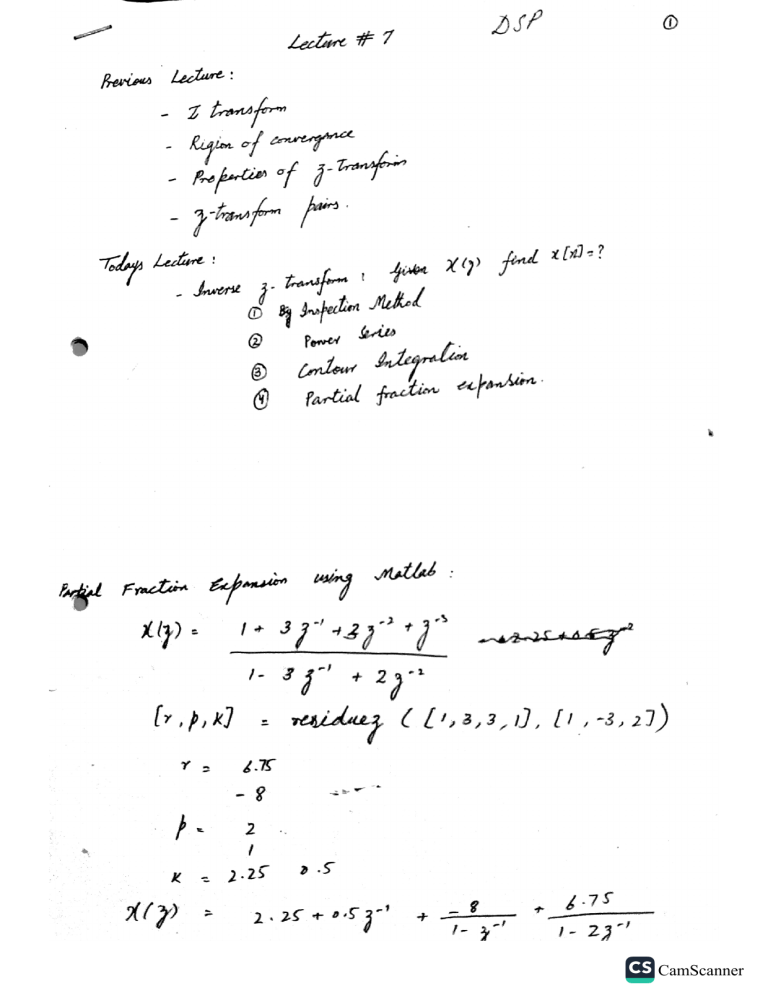 DSP
①
Lecture # 7
Previous Lecture:
- Z transform
- Rigion of convergence
- Properties of z-Transform
- z-transform pairs.
Todays Lecture:
- Inverse z-transform: Given X(z) find x[n]=?
① By Inspection Method
② Power Series
③ Contour Integration
④ Partial fraction expansion.
Partial Fraction Expansion using Matlab:
X(z) = 1 + 3z⁻¹ + 3z⁻² + z⁻³
1 - 3z⁻¹ + 2z⁻²
[r, p, k] = residuez ([1,3,3,1], [1,-3,2])
r = 6.75
-8
p = 2
1
K = 2.25 0.5
X(z) = 2.25 + 0.5z⁻¹ + -8/(1 - z⁻¹) + 6.75/(1 - 2z⁻¹)
CS CamScanner